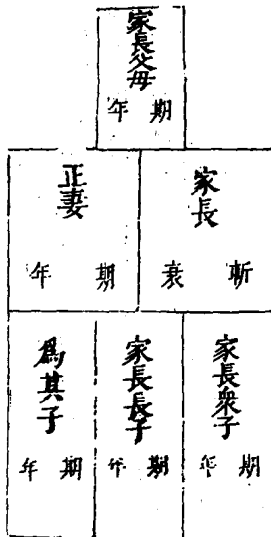 家長父母
期年
家長
斬衰
正妻
期年
家長衆子
期年
家長長子
期年
爲其子
期年